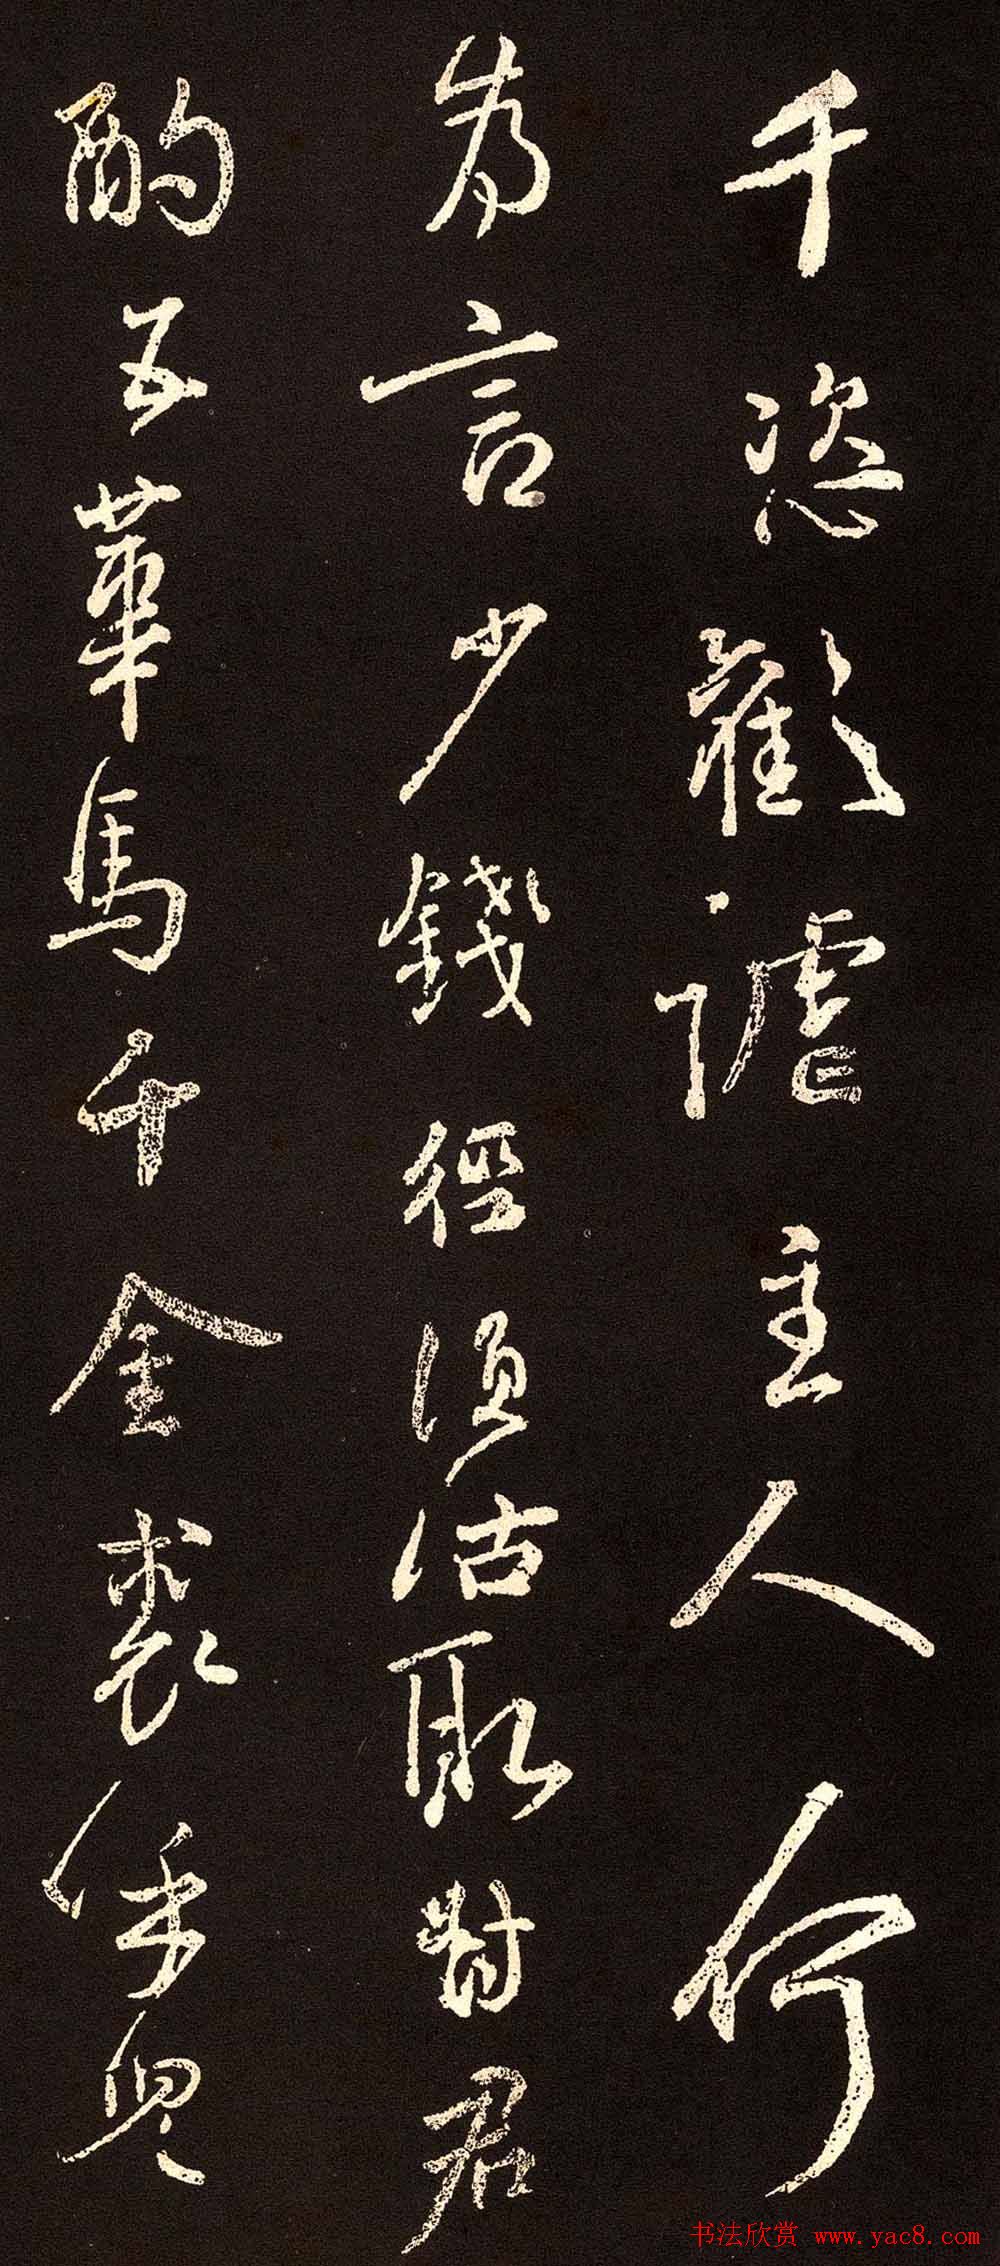 千恣歡謔主人何
為言少錢徑須沽取對君
酌五華馬千金裘呼兒
书法欣赏 www.yac8.com